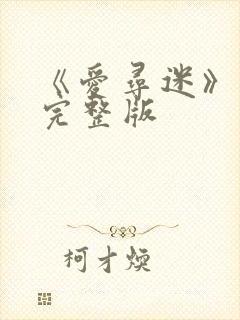 《爱寻迷》
完整版
柯才焕